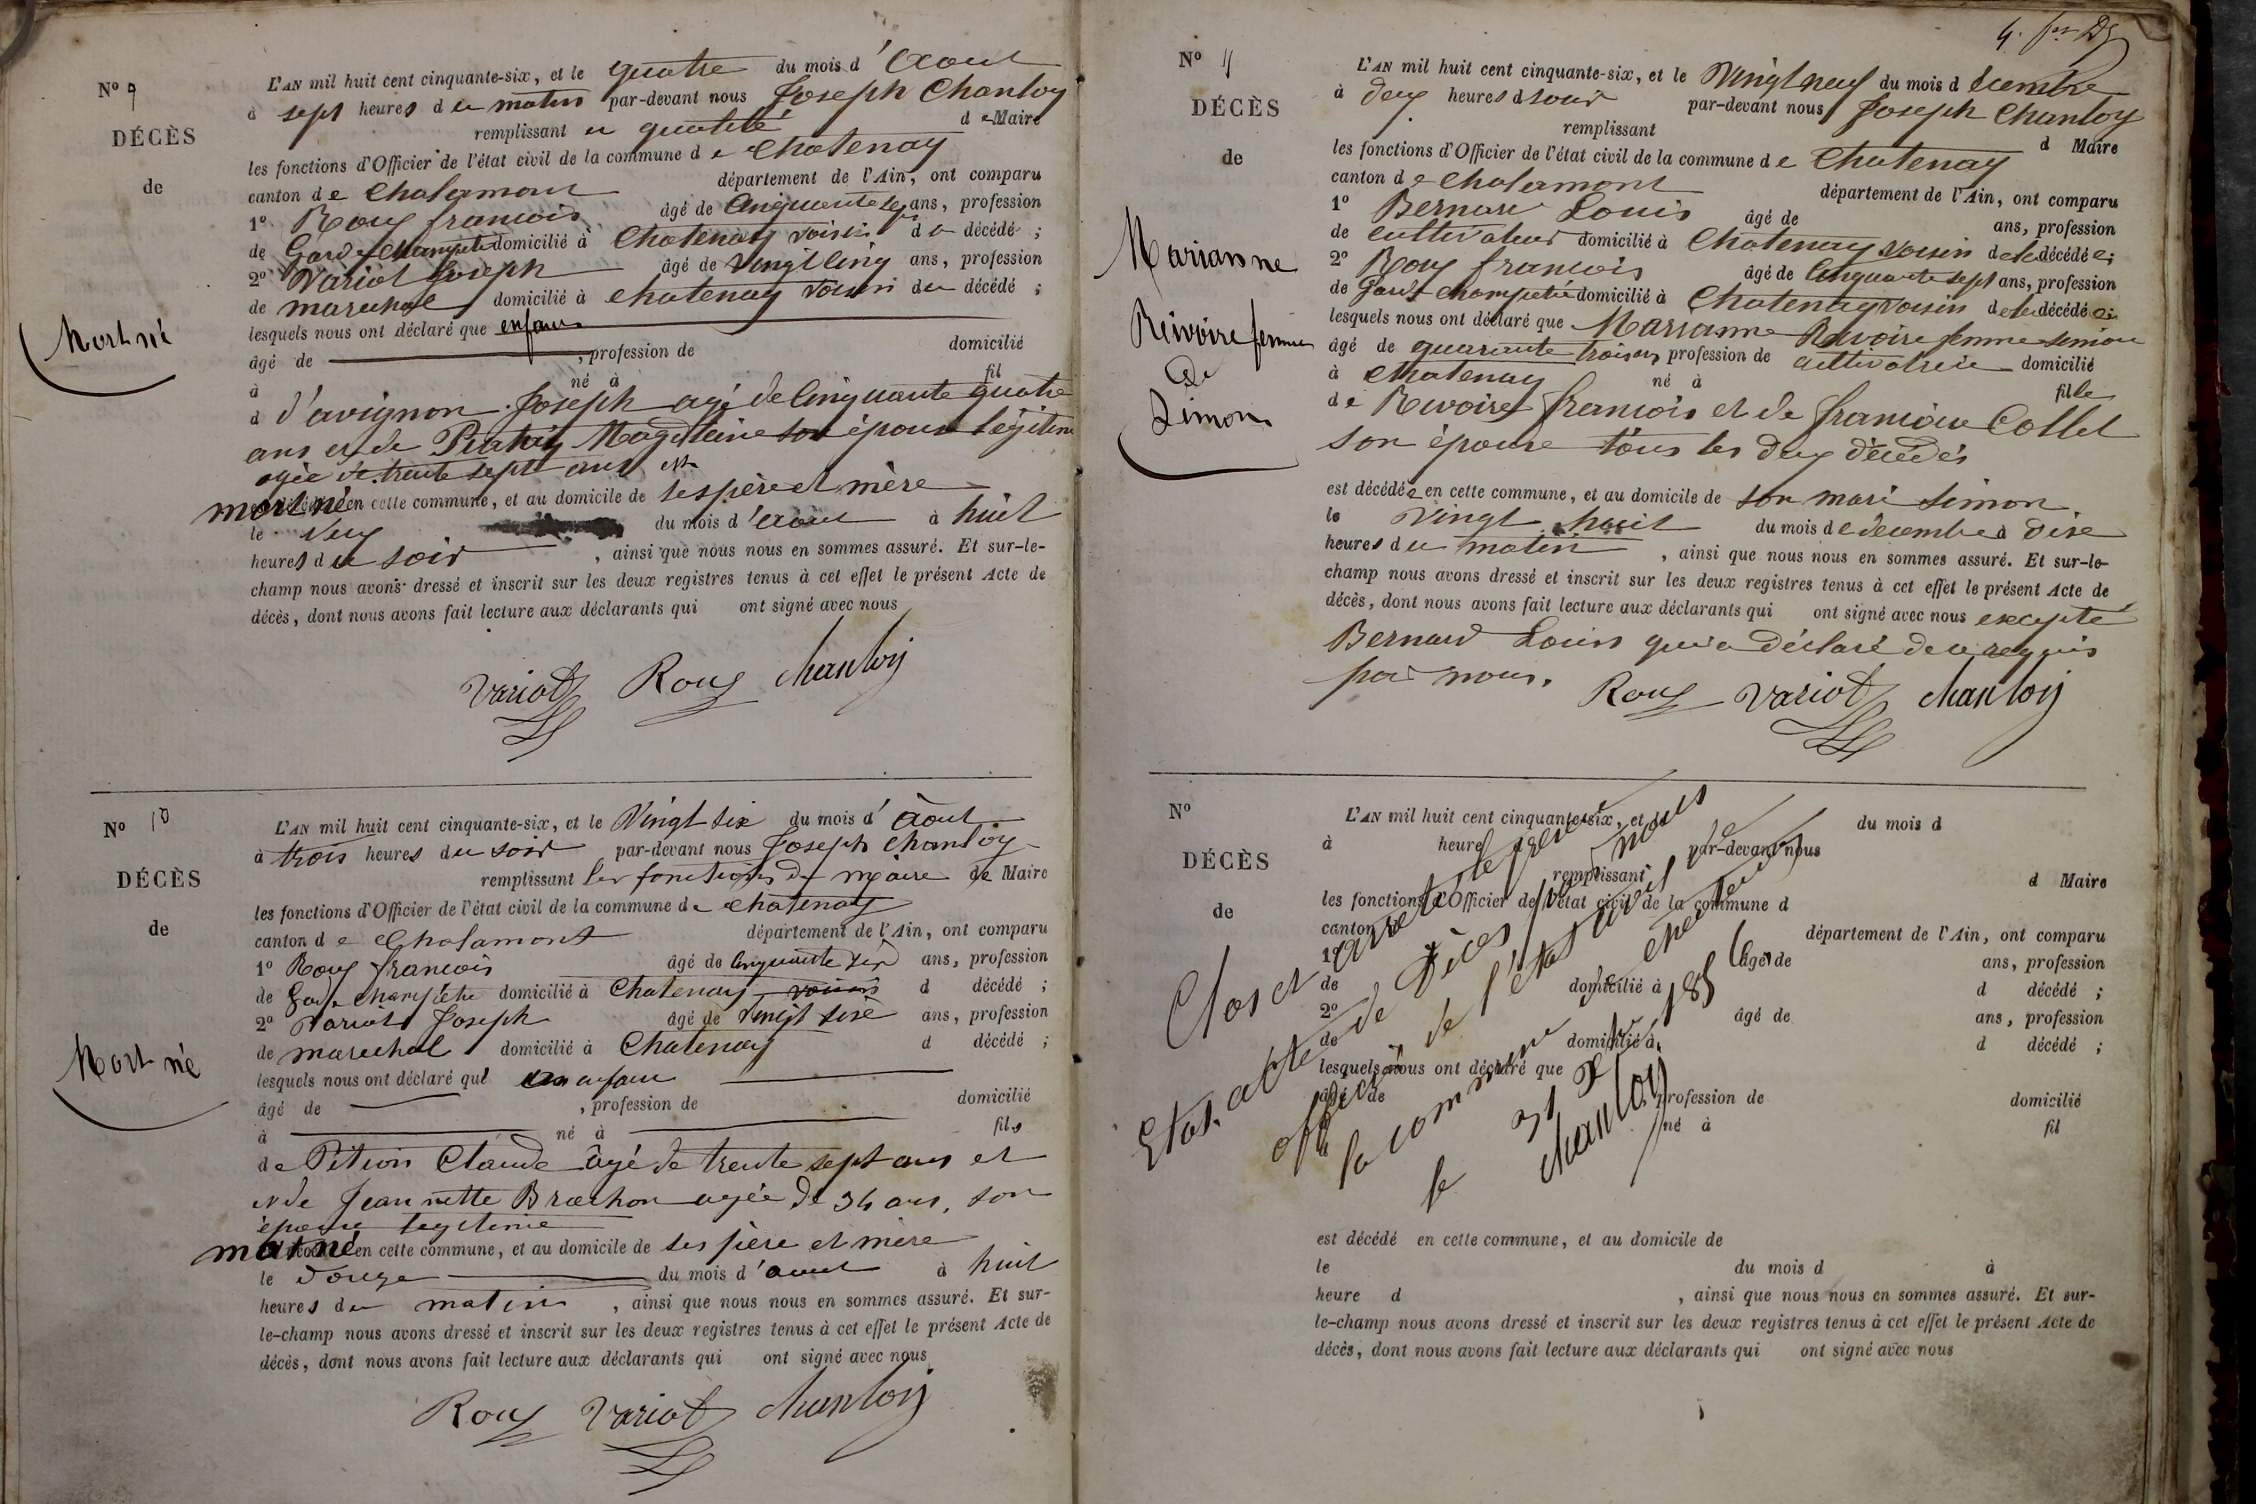 N° 9
DÉCÈS
de
Mort né
L'AN mil huit cent cinquante-six, et le quatre du mois d'Aout
à sept heures du matin par-devant nous Joseph Chanloy
remplissant en qualité de Maire
les fonctions d'Officier de l'état civil de la commune de Chatenay
canton de Chalamont département de l'Ain, ont comparu
1° Roux francois âgé de Cinquante sept ans, profession
de Garde champetre domicilié à Chatenay voisin du décédé ;
2° Variot Joseph âgé de Vingt cinq ans, profession
de marechal domicilié à chatenay voisin du décédé ;
lesquels nous ont déclaré que enfant
âgé de , profession de domicilié
à né à fil
d d'avignon Joseph agé de Cinquante quatre
ans et de Magdeleine son épouse légitime
agée de trente sept ans est
mort né en cette commune, et au domicile de ses père et mère
le deux du mois d'aout à huit
heures du soir , ainsi que nous nous en sommes assuré. Et sur-le-
champ nous avons dressé et inscrit sur les deux registres tenus à cet effet le présent Acte de
décès, dont nous avons fait lecture aux déclarants qui ont signé avec nous
Variot Roux chanloy
N° 10
DÉCÈS
de
Mort né
L'AN mil huit cent cinquante-six, et le Vingt six du mois d'Aout
à trois heures du soir par-devant nous Joseph chanloy
remplissant les fonctions de maire de Maire
les fonctions d'Officier de l'état civil de la commune de chatenay
canton de Chalamont département de l'Ain, ont comparu
1° Roux francois âgé de Cinquante six ans, profession
de Garde champetre domicilié à Chatenay voisins d décédé ;
2° Variot Joseph âgé de Vingt six ans, profession
de marechal domicilié à Chatenay d décédé ;
lesquels nous ont déclaré que un enfant
âgé de , profession de domicilié
à né à fils
de Pition Claude âgé de trente sept ans et
et de Jeannette Brochon agée de 34 ans, son
épouse legitime
mort né en cette commune, et au domicile de ses père et mère
le douze du mois d'aout à huit
heures du matin , ainsi que nous nous en sommes assuré. Et sur-
le-champ nous avons dressé et inscrit sur les deux registres tenus à cet effet le présent Acte de
décès, dont nous avons fait lecture aux déclarants qui ont signé avec nous
Roux Variot chanloy
N° 11
DÉCÈS
de
Marianne
Reivoire femme
de
Simon
L'AN mil huit cent cinquante-six, et le Vingt neuf du mois d écembre
à deux heures d soir par-devant nous Joseph Chanloy
remplissant d Maire
les fonctions d'Officier de l'état civil de la commune de Chatenay
canton de Chalamont département de l'Ain, ont comparu
1° Bernard Louis âgé de ans, profession
de cultivateur domicilié à Chatenay voisin de la décédée ;
2° Roux francois âgé de Cinquante sept ans, profession
de Garde champetre domicilié à Chatenay voisin de la décédée ;
lesquels nous ont déclaré que Marianne Revoire femme simon
âgé de quarante trois ans, profession de cultivatrice domicilié
à Chatenay né à fille
de Revoire francois et de francoise Collet
son épouse tous les deux décédés
est décédée en cette commune, et au domicile de son mari simon
le Vingt huit du mois de decembre à dixe
heures du matin , ainsi que nous nous en sommes assuré. Et sur-le-
champ nous avons dressé et inscrit sur les deux registres tenus à cet effet le présent Acte de
décès, dont nous avons fait lecture aux déclarants qui ont signé avec nous excepté
Bernard Louis qui a déclaré de ce requis
par nous.
Roux Variot chanloy
N°
DÉCÈS
de
L'AN mil huit cent cinquante-six, et le du mois d
à heure par-devant nous
remplissant d Maire
les fonctions d'Officier de l'état civil de la commune d
canton département de l'Ain, ont comparu
1° âgé de ans, profession
de domicilié à d décédé ;
2° âgé de ans, profession
de domicilié à d décédé ;
lesquels nous ont déclaré que
âgé de profession de domicilié
né à fil
Clos et arreté le present
Etat acte de Décès par nous
officier de l'état civil de
la commune de chatenay
le 31 Xbre 1856
chanloy
est décédé en cette commune, et au domicile de
le du mois d à
heure d , ainsi que nous nous en sommes assuré. Et sur-
le-champ nous avons dressé et inscrit sur les deux registres tenus à cet effet le présent Acte de
décès, dont nous avons fait lecture aux déclarants qui ont signé avec nous